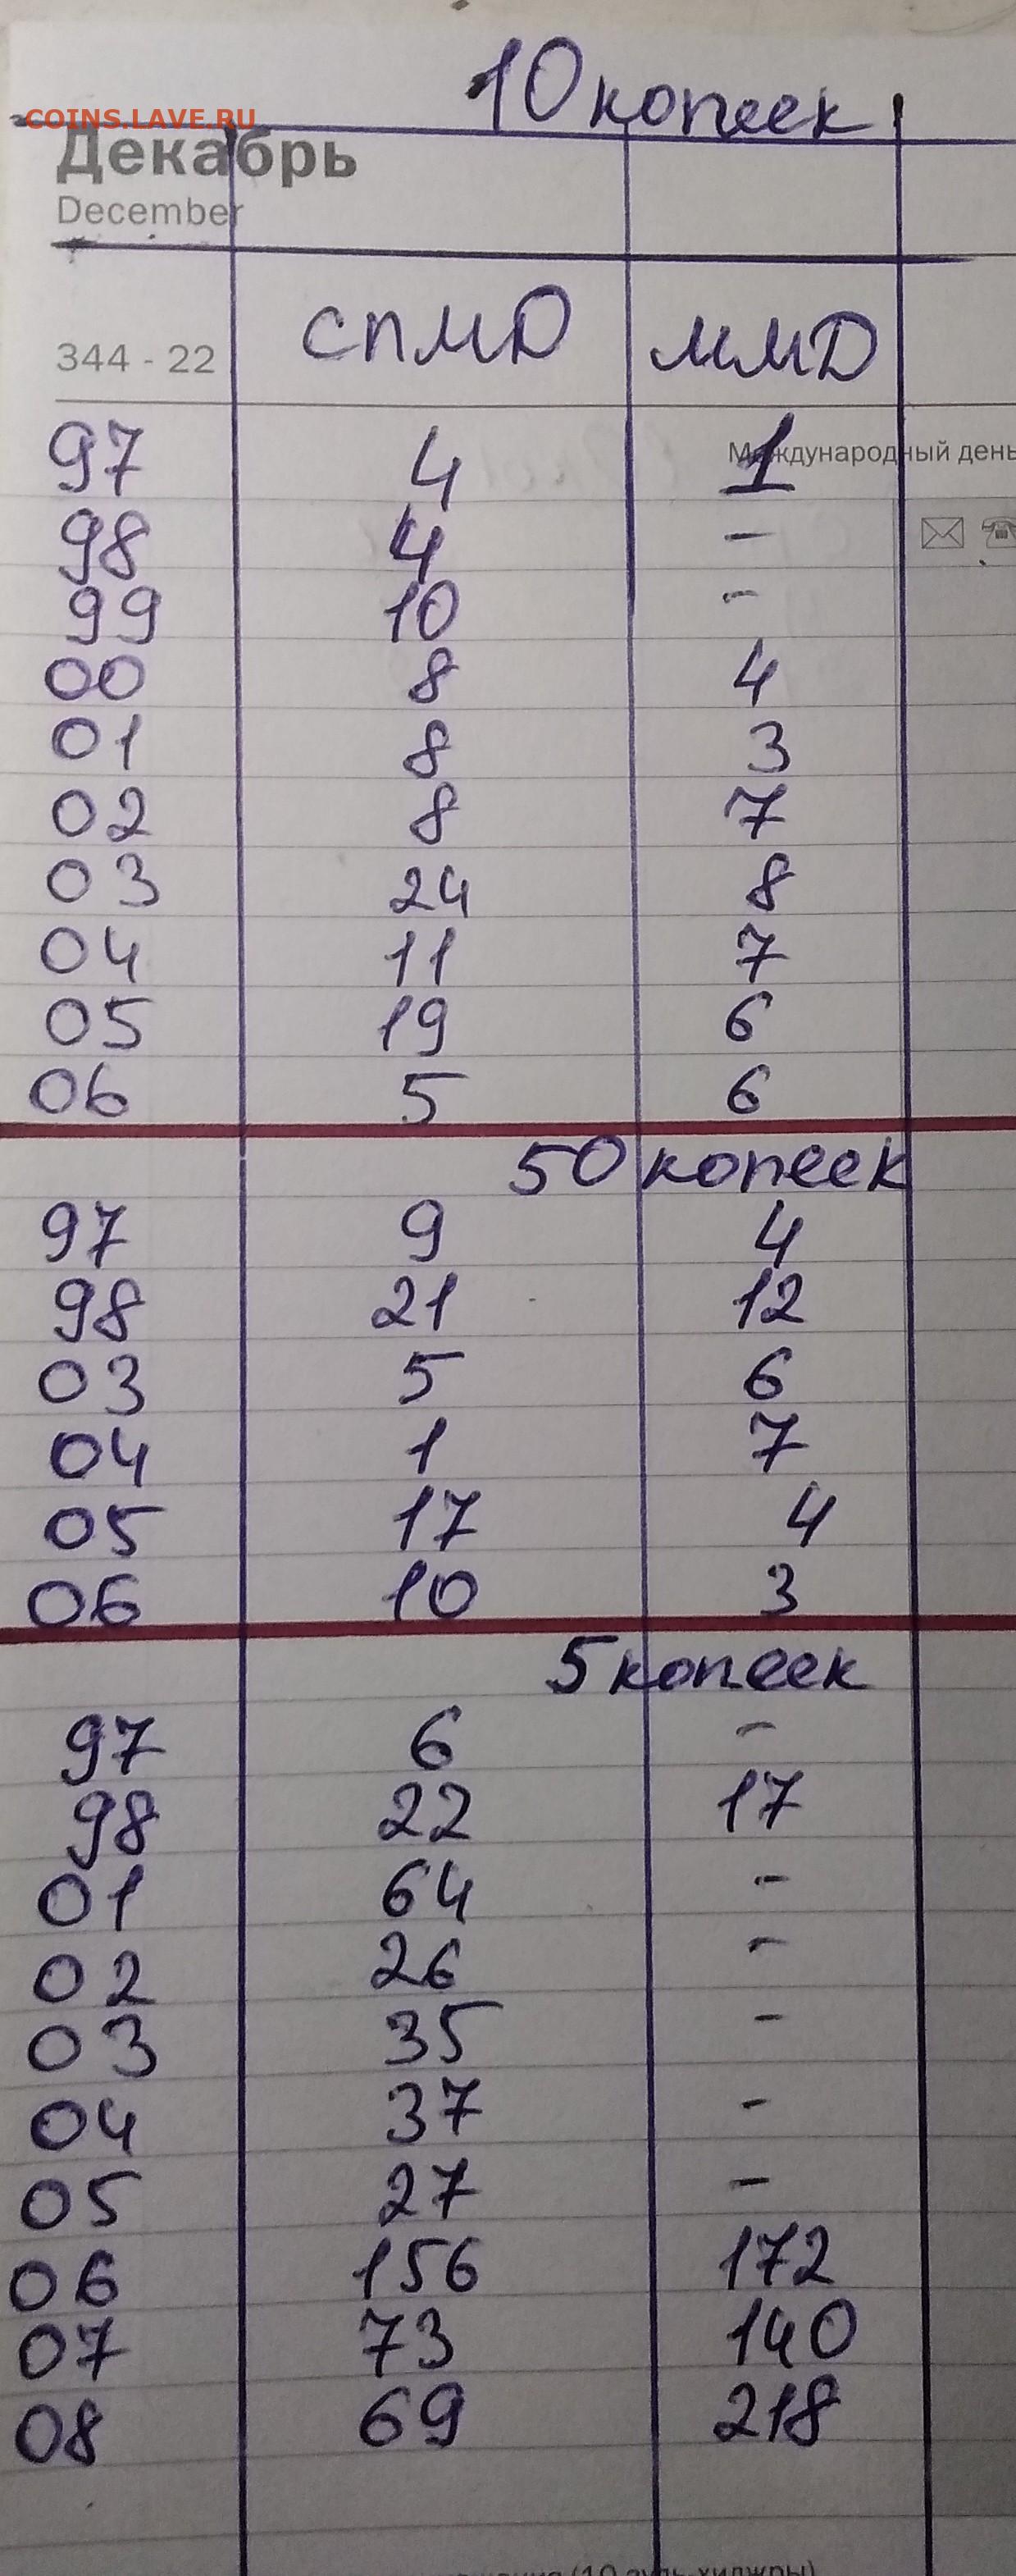 10 копеек
COINS.LAVE.RU
Декабрь
December
СПМД ММД
344 - 22
97 4 1
Международный день
98 4 -
99 10 -
00 8 4
01 8 3
02 8 7
03 24 8
04 11 7
05 19 6
06 5 6
50 копеек
97 9 4
98 21 12
03 5 6
04 1 7
05 17 4
06 10 3
5 копеек
97 6 -
98 22 17
01 64 -
02 26 -
03 35 -
04 37 -
05 27 -
06 156 172
07 73 140
08 69 218